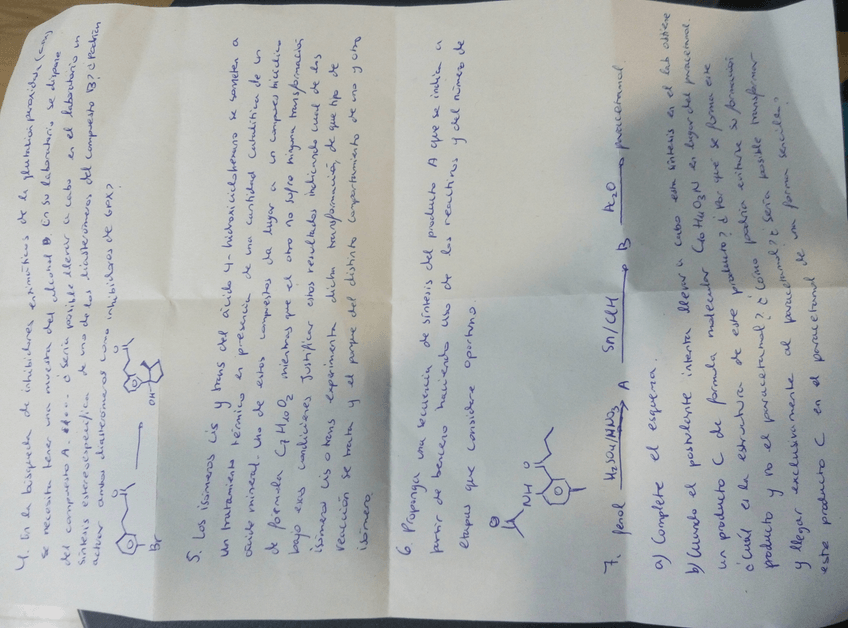 4. En la búsqueda de inhibidores enzimáticos de la glutatión peroxidasa, (GPX)
se necesita tener una muestra del alcohol B. En su laboratorio se dispone
del compuesto A. ¿Sería posible llevar a cabo en el laboratorio un
síntesis estereoespecífica de uno de los diastereómeros del compuesto B? ¿Podrían
actuar ambos diastereómeros como inhibidores de GPX?
Br
OH
5. Los isómeros cis y trans del ácido 4-hidroxiciclohexano se someten a
un tratamiento térmico en presencia de una cantidad catalítica de un
ácido mineral. Uno de estos compuestos da lugar a un compuesto bicíclico
de fórmula C7H10O2 mientras que el otro no sufre ninguna transformación
bajo esas condiciones. Justificar estos resultados indicando cual de los
isómeros cis o trans experimenta dicha transformación, de que tipo de
reacción se trata y el porque del distinto comportamiento de uno y otro
isómero
6. Proponga una secuencia de síntesis del producto A que se indica a
partir de benceno haciendo uso de los reactivos y del número de
etapas que considere oportuno.
NH
O
7. fenol H2SO4/HNO3 A Sn/ClH B Ac2O paracetamol
a) Complete el esquema.
b) Cuando el postulante intenta llevar a cabo esta síntesis en el lab obtiene
un producto C de formula molecular C10H11O3N en lugar del paracetamol.
¿Cuál es la estructura de este producto? ¿Por qué se forma este
producto y no el paracetamol? ¿Cómo podría evitarse su formación
y llegar exclusivamente al paracetamol? ¿Sería posible transformar
este producto C en el paracetamol de una forma sencilla?